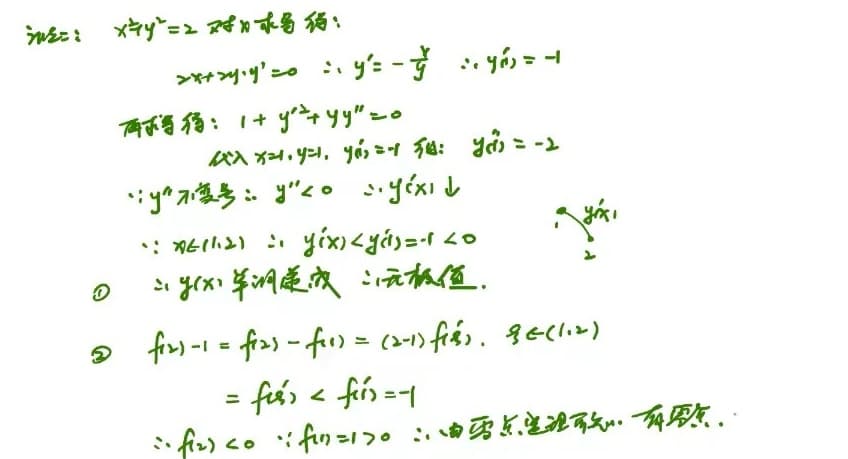 法二: x²+y²=2 对x求导得:
2x+2y·y'=0 ∴ y'=-x/y ∴ y'(1)=-1
再求导得: 1+y'²+yy''=0
代入 x=1, y=1, y'(1)=-1 得: y''(1)=-2
∵ y''不变号 ∴ y''<0 ∴ y'(x)↓
∵ x∈(1,2) ∴ y'(x)<y'(1)=-1<0
y'(x)
1
2
① ∴ y(x) 单调递减 ∴ 无极值.
② f(2)-1=f(2)-f(1)=(2-1)f'(ξ). ξ∈(1,2)
=f'(ξ)<f'(1)=-1
∴ f(2)<0 ∵ f(1)=1>0 ∴ 由零点定理 有零点.